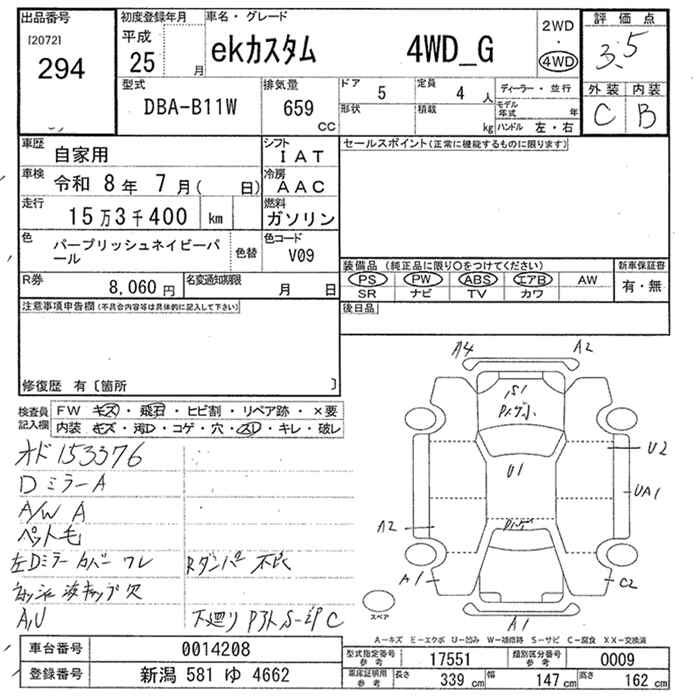 出品番号
[2072]
294
初度登録年月
平成
25 月
車名・グレード
ekカスタム 4WD_G
2WD
・
4WD
評価点
3.5
外装 内装
C B
型式
DBA-B11W
排気量
659 CC
ドア 5
定員 4 人
形状
積載 kg
ディーラー・並行
モデル年式 年
ハンドル 左・右
車歴
自家用
シフト
IAT
車検
令和 8年 7月( 日)
冷房
AAC
走行
15万3千400 km
燃料
ガソリン
色
パープリッシュネイビーパール
色替
色コード
V09
R券
8,060 円
名変通知期限
月 日
セールスポイント(正常に機能するものに限ります)
装備品(純正品に限り○をつけてください)
PS PW ABS エアB AW
SR ナビ TV カワ
新車保証書
有・無
後日品
注意事項申告欄(不具合内容等は具体的に記入して下さい)
修復歴 有〔箇所 〕
検査員記入欄
FW キズ・飛石・ヒビ割・リペア跡・×要
内装 キズ・汚レ・コゲ・穴・スレ・キレ・破レ
オド153376
Dミラー A
A/W A
ペット毛
左Dミラーカバー ワレ
Rダンパー
A,U
下廻り
A4
A2
S1
U1
U2
UA1
A2
A1
C2
A1
スペア
A-キズ E-エクボ U-凹み W-補修跡 S-サビ C-腐食 XX-交換済
車台番号
0014208
登録番号
新潟 581 ゆ 4662
型式指定番号
参考
17551
類別区分番号
参考
0009
車庫証明用
参考
長さ 339 cm
幅 147 cm
高さ 162 cm